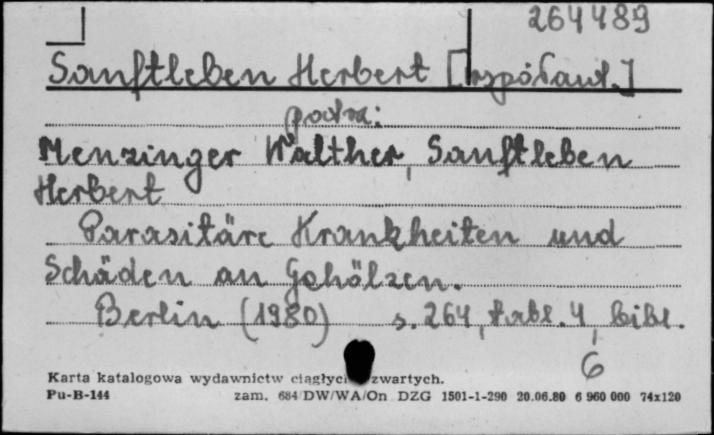 264489
Sanftleben Herbert [współaut.]
patrz:
Menzinger Walther, Sanftleben
Herbert
Parasitäre Krankheiten und
Schäden an Gehölzen.
Berlin (1980) s. 264, tabl. 4, bibl.
6
Karta katalogowa wydawnictw ciągłyc zwartych.
Pu-B-144 zam. 684/DW/WA/On DZG 1501-1-290 20.06.80 6 960 000 74x120